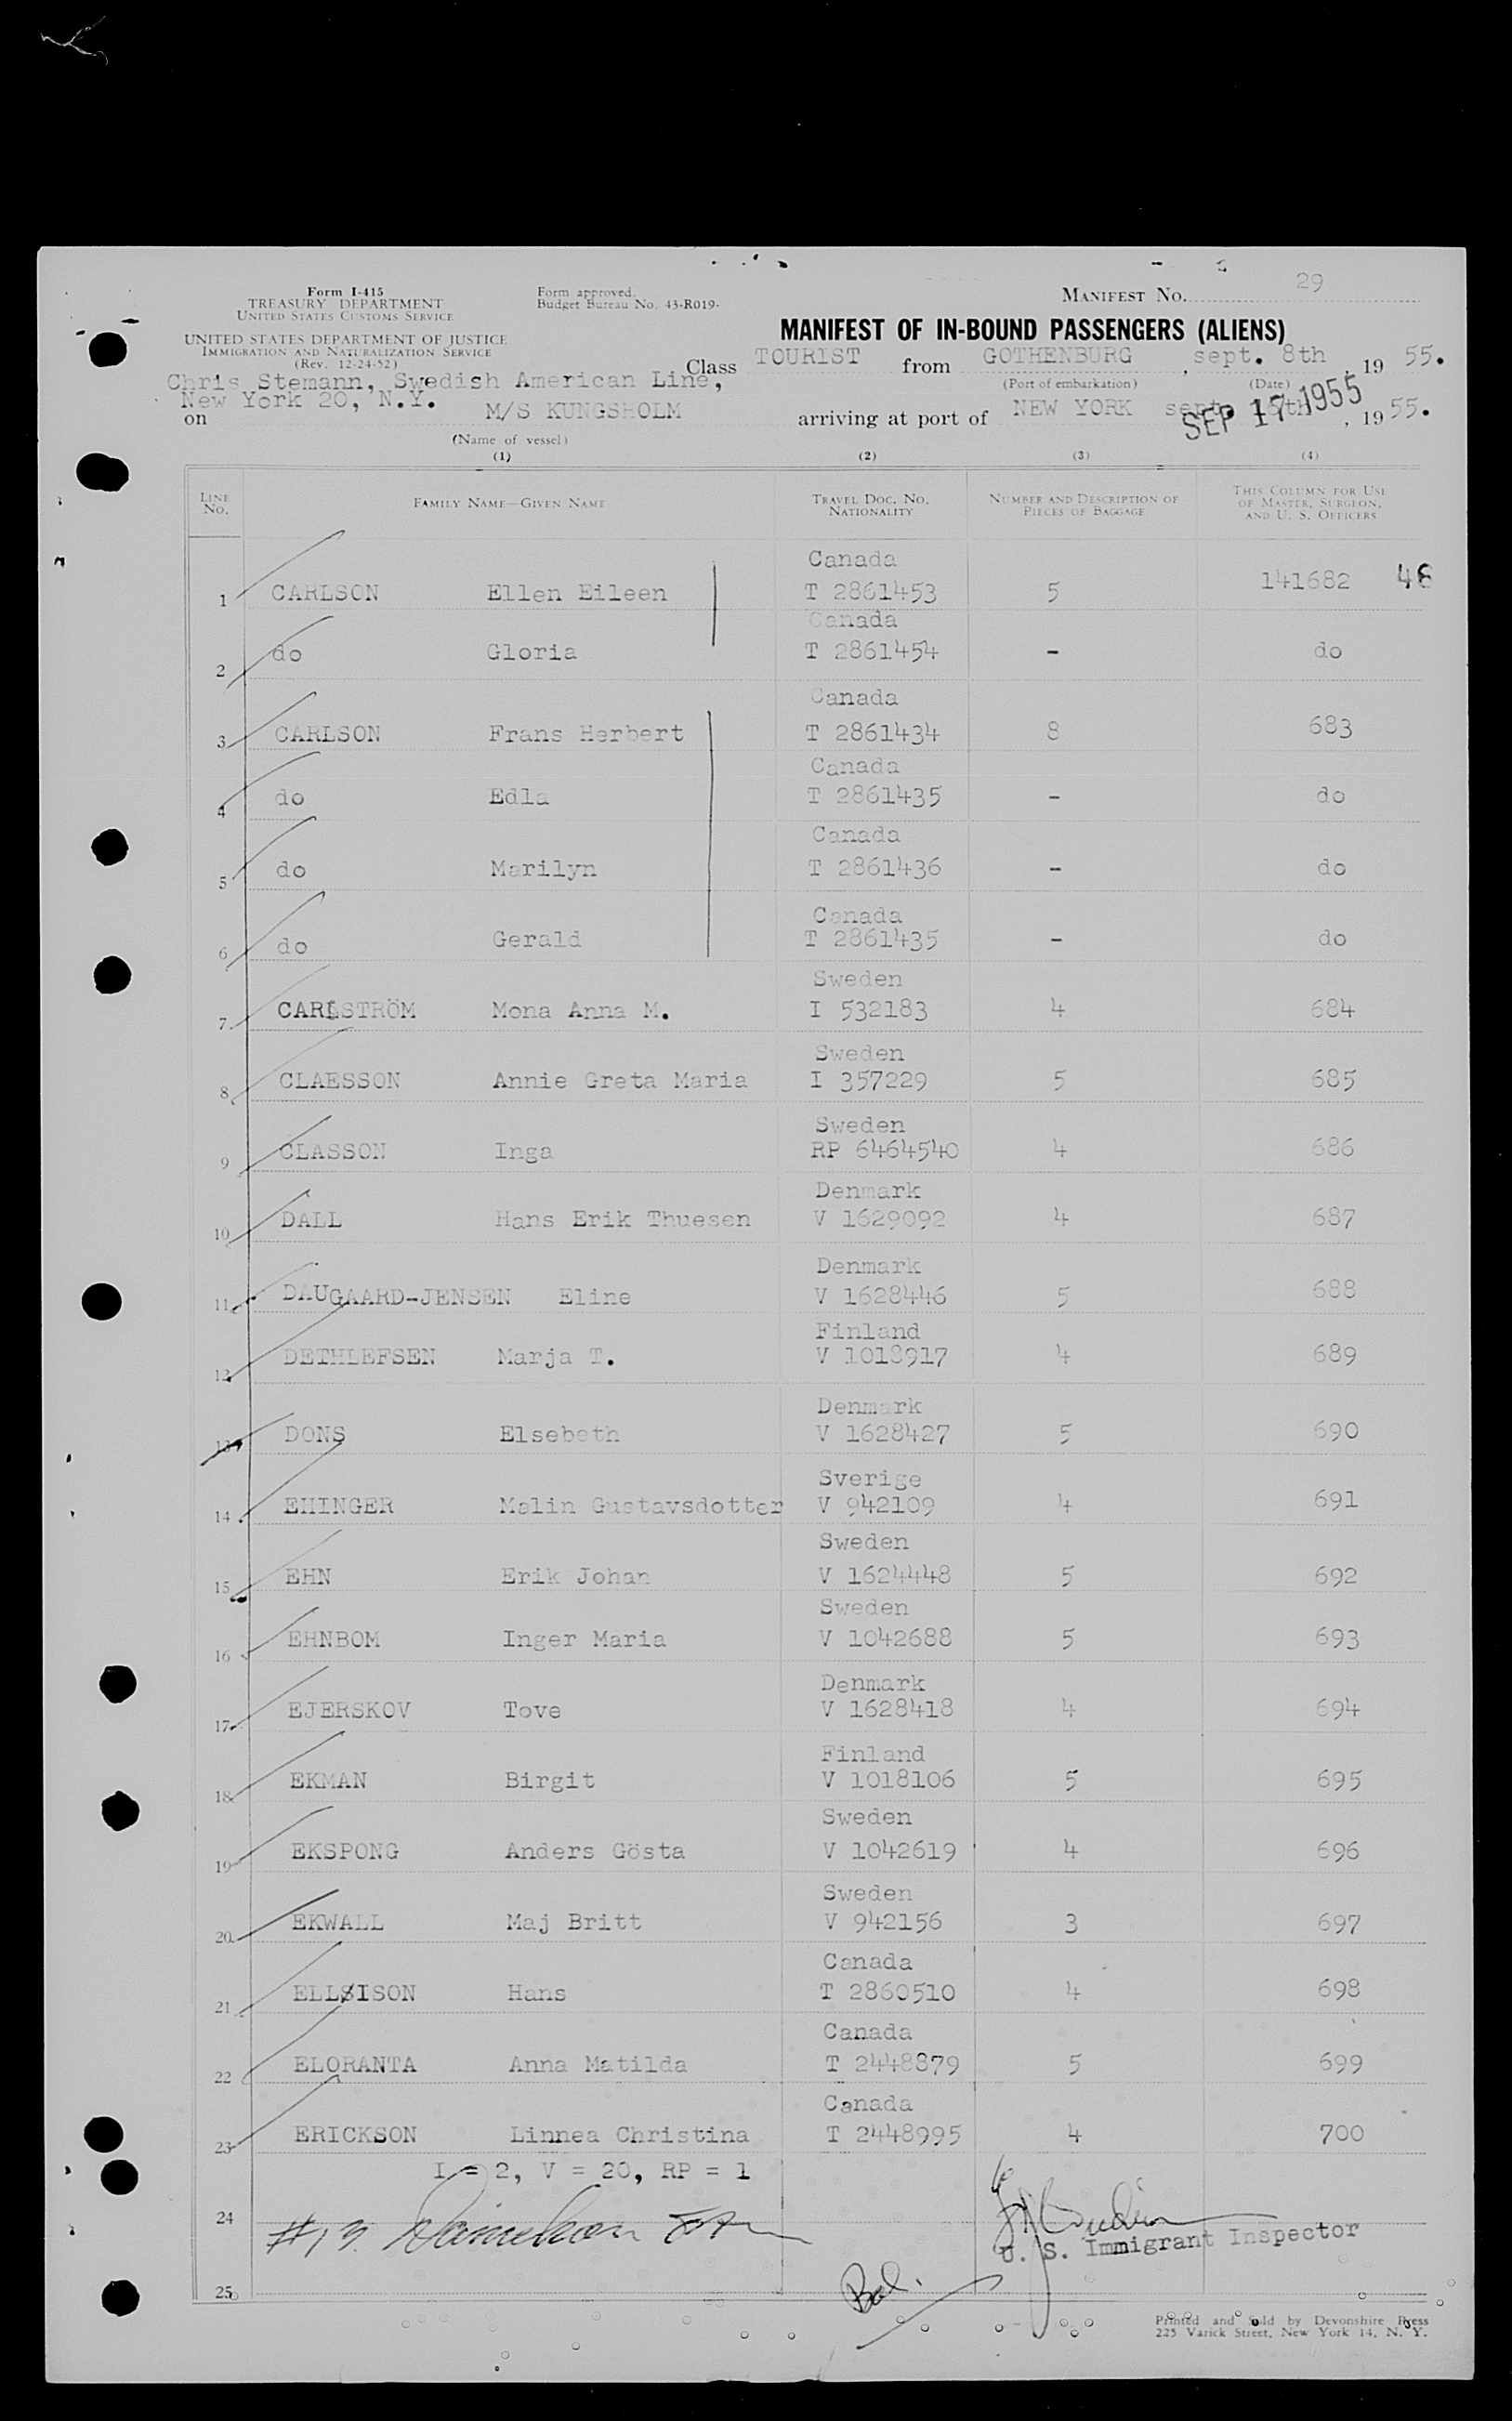 29
Form I-415
TREASURY DEPARTMENT
UNITED STATES CUSTOMS SERVICE
Form approved.
Budget Bureau No. 43-R019-
MANIFEST NO.
UNITED STATES DEPARTMENT OF JUSTICE
IMMIGRATION AND NATURALIZATION SERVICE
(Rev. 12-24-52)
MANIFEST OF IN-BOUND PASSENGERS (ALIENS)
Class TOURIST from GOTHENBURG, sept. 8th, 19 55.
(Port of embarkation) (Date)
Chris Stemann, Swedish American Line,
New York 20, N.Y.
on M/S KUNGSHOLM arriving at port of NEW YORK sept. SEP 17 1955, 19 55.
(Name of vessel)
(1) (2) (3) (4)
LINE NO. FAMILY NAME—GIVEN NAME TRAVEL DOC. NO. NATIONALITY NUMBER AND DESCRIPTION OF PIECES OF BAGGAGE THIS COLUMN FOR USE OF MASTER, SURGEON, AND U. S. OFFICERS
Canada
1 CARLSON Ellen Eileen T 2861453 5 141682 46
Canada
2 do Gloria T 2861454 - do
Canada
3 CARLSON Frans Herbert T 2861434 8 683
Canada
4 do Edla T 2861435 - do
Canada
5 do Marilyn T 2861436 - do
Canada
6 do Gerald T 2861435 - do
Sweden
7 CARLSTRÖM Mona Anna M. I 532183 4 684
Sweden
8 CLAESSON Annie Greta Maria I 357229 5 685
Sweden
9 CLASSON Inga RP 6464540 4 686
Denmark
10 DALL Hans Erik Thuesen V 1629092 4 687
Denmark
11 DAUGAARD-JENSEN Eline V 1628446 5 688
Finland
12 DETHLEFSEN Marja T. V 1018917 4 689
Denmark
13 DONS Elsebeth V 1628427 5 690
Sverige
14 EHINGER Malin Gustavsdotter V 942109 4 691
Sweden
15 EHN Erik Johan V 1624448 5 692
Sweden
16 EHNBOM Inger Maria V 1042688 5 693
Denmark
17 EJERSKOV Tove V 1628418 4 694
Finland
18 EKMAN Birgit V 1018106 5 695
Sweden
19 EKSPONG Anders Gösta V 1042619 4 696
Sweden
20 EKWALL Maj Britt V 942156 3 697
Canada
21 ELLSISON Hans T 2860510 4 698
Canada
22 ELORANTA Anna Matilda T 2448879 5 699
Canada
23 ERICKSON Linnea Christina T 2448995 4 700
I = 2, V = 20, RP = 1
24 #13.
U. S. Immigrant Inspector
Bal.
25
Printed and Sold by Devonshire Press
225 Varick Street, New York 14, N. Y.